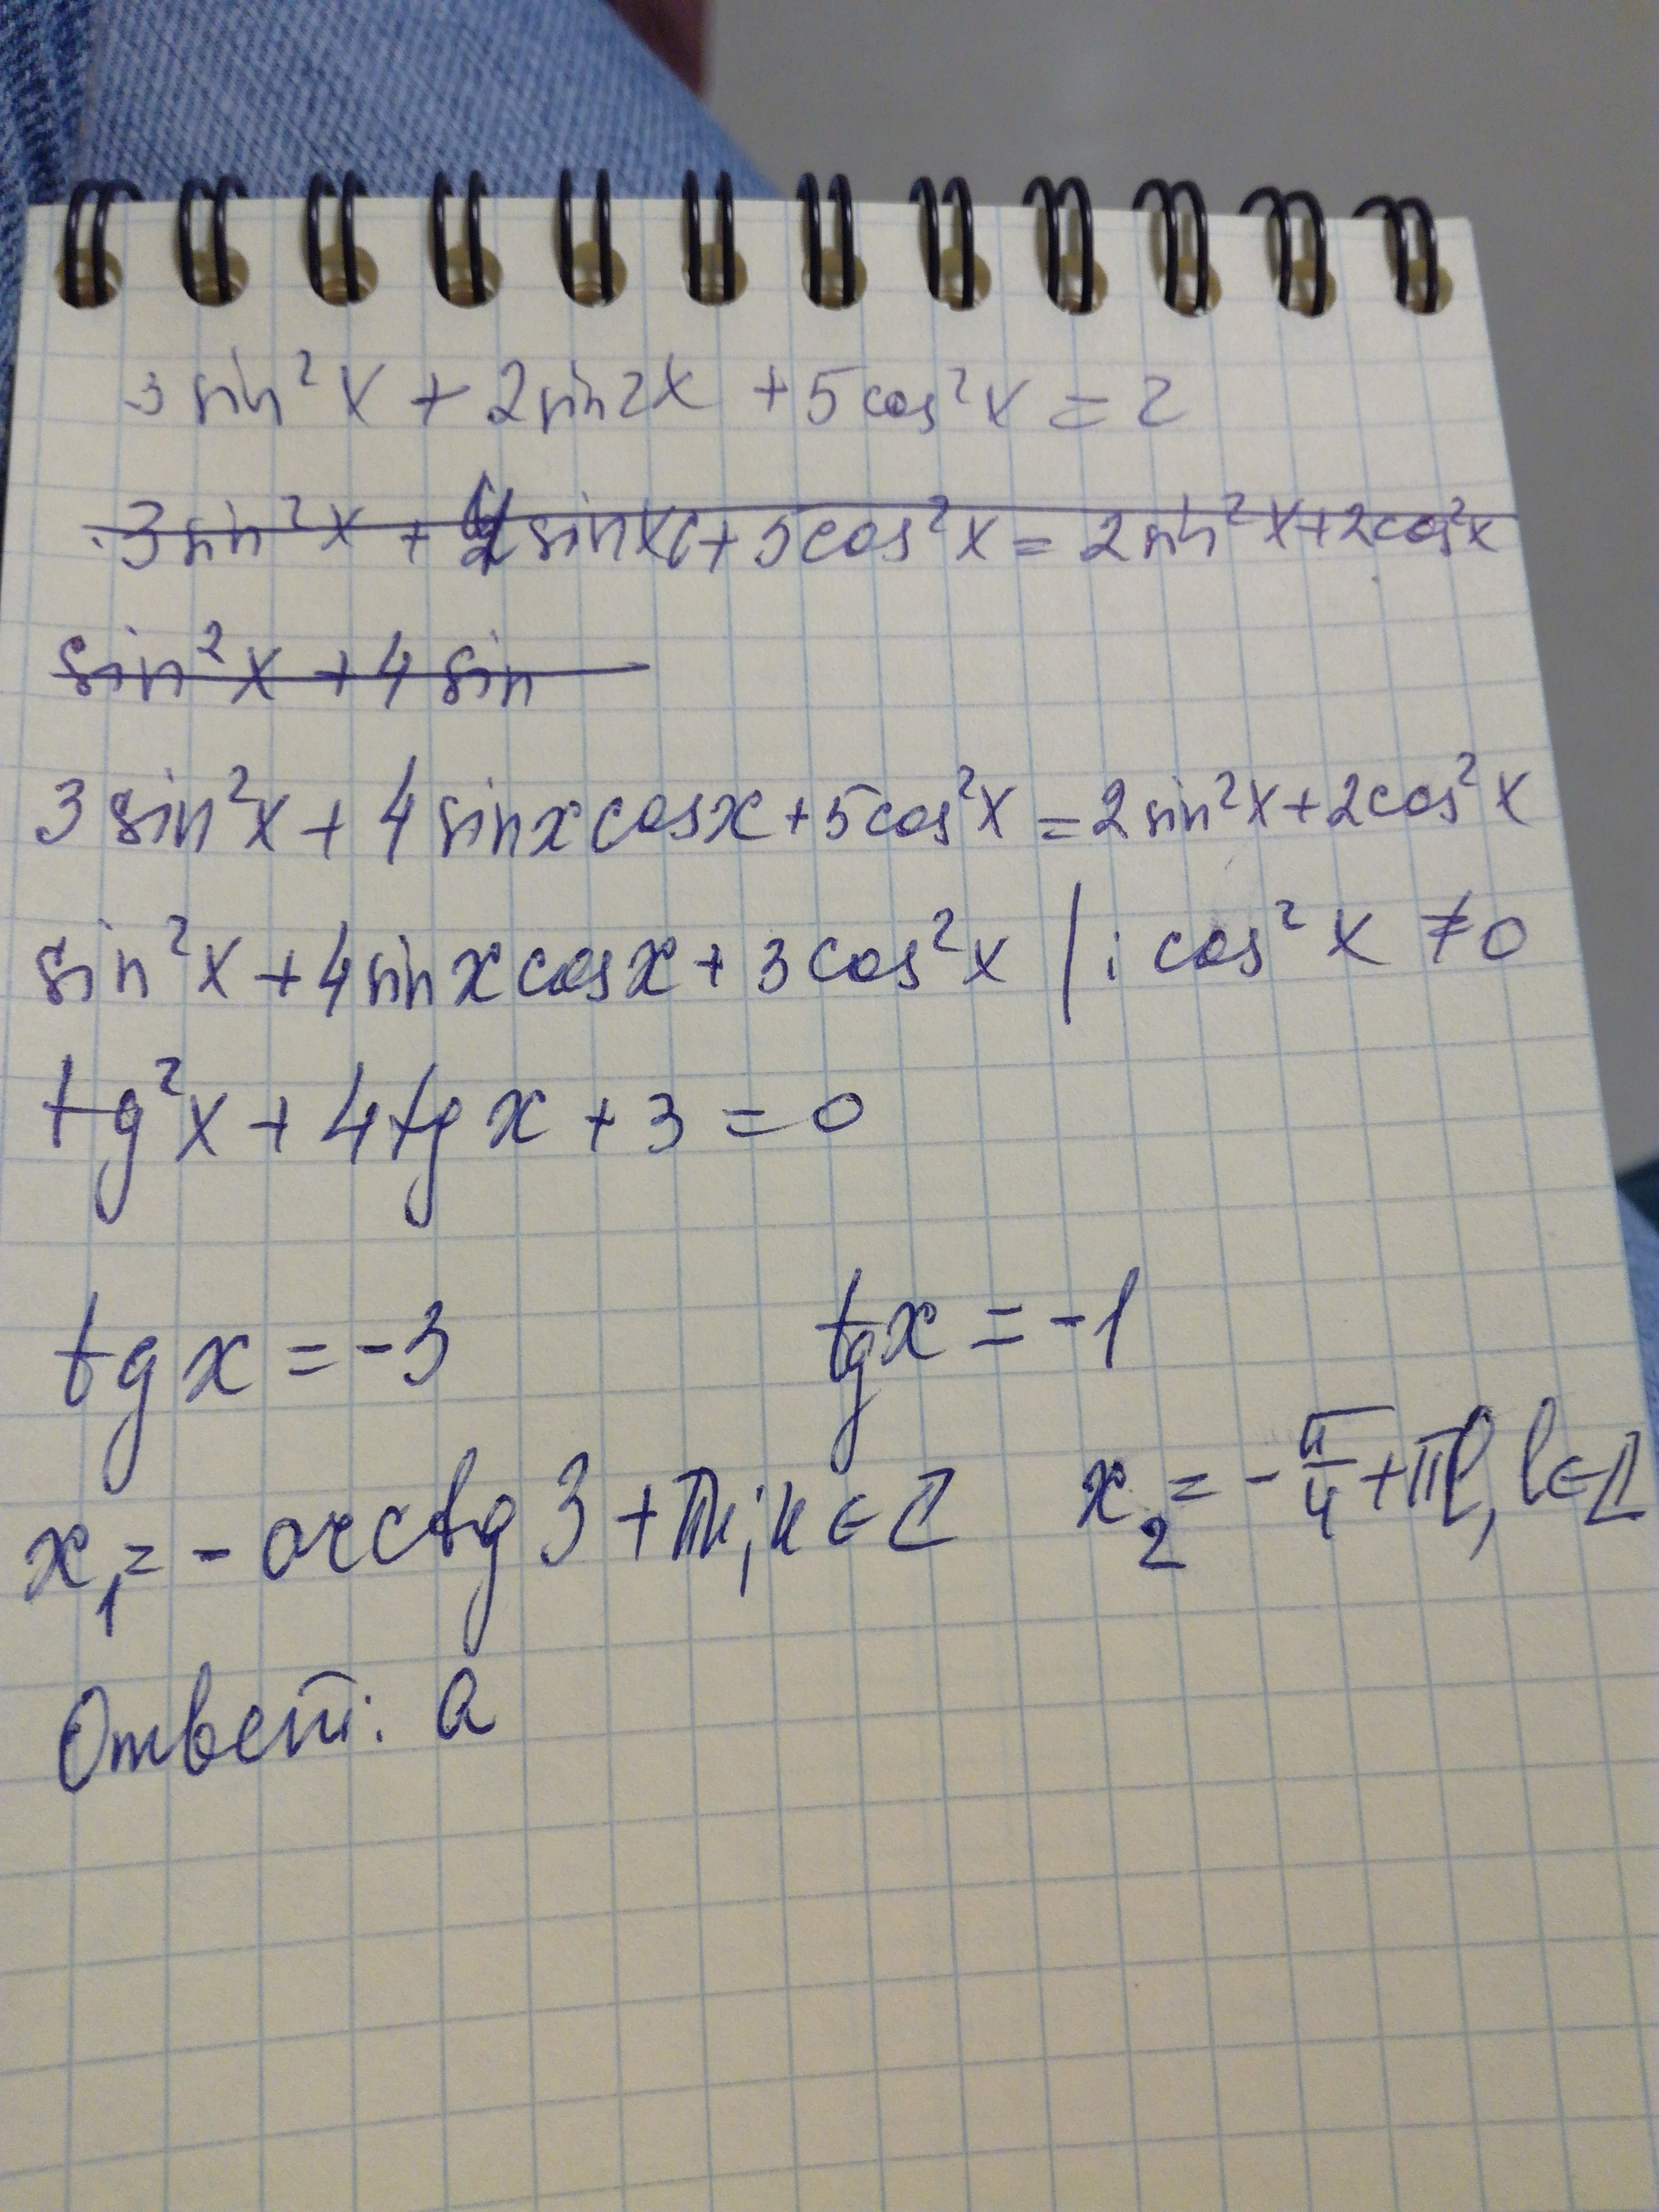 3 sin²x + 2 sin2x + 5 cos²x = 2
3 sin²x + 4 sinxc + 5cos²x = 2 sin²x + 2cos²x
sin²x + 4 sin
3 sin²x + 4 sinx cosx + 5cos²x = 2 sin²x + 2cos²x
sin²x + 4 sinx cosx + 3cos²x | : cos²x ≠ 0
tg²x + 4tg x + 3 = 0
tg x = -3 tg x = -1
x₁ = - arctg 3 + πk; k ∈ Z x₂ = - π/4 + πl, l ∈ Z
Ответ: a